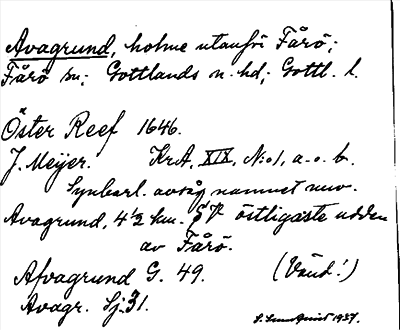 Avagrund, holme utanför Fårö;
Fårö sn; Gottlands n. hd; Gottl. l.
Öster Reef 1646.
J. Meijer. KrA, XIX, N:o 1, a. o. b.
Synbarl. avsåg namnet nuv.
Avagrund, 4½ km. östligaste udden
av Fårö.
Afvagrund G. 49. (Vänd!)
Avagr. Sj. 31.
1937.